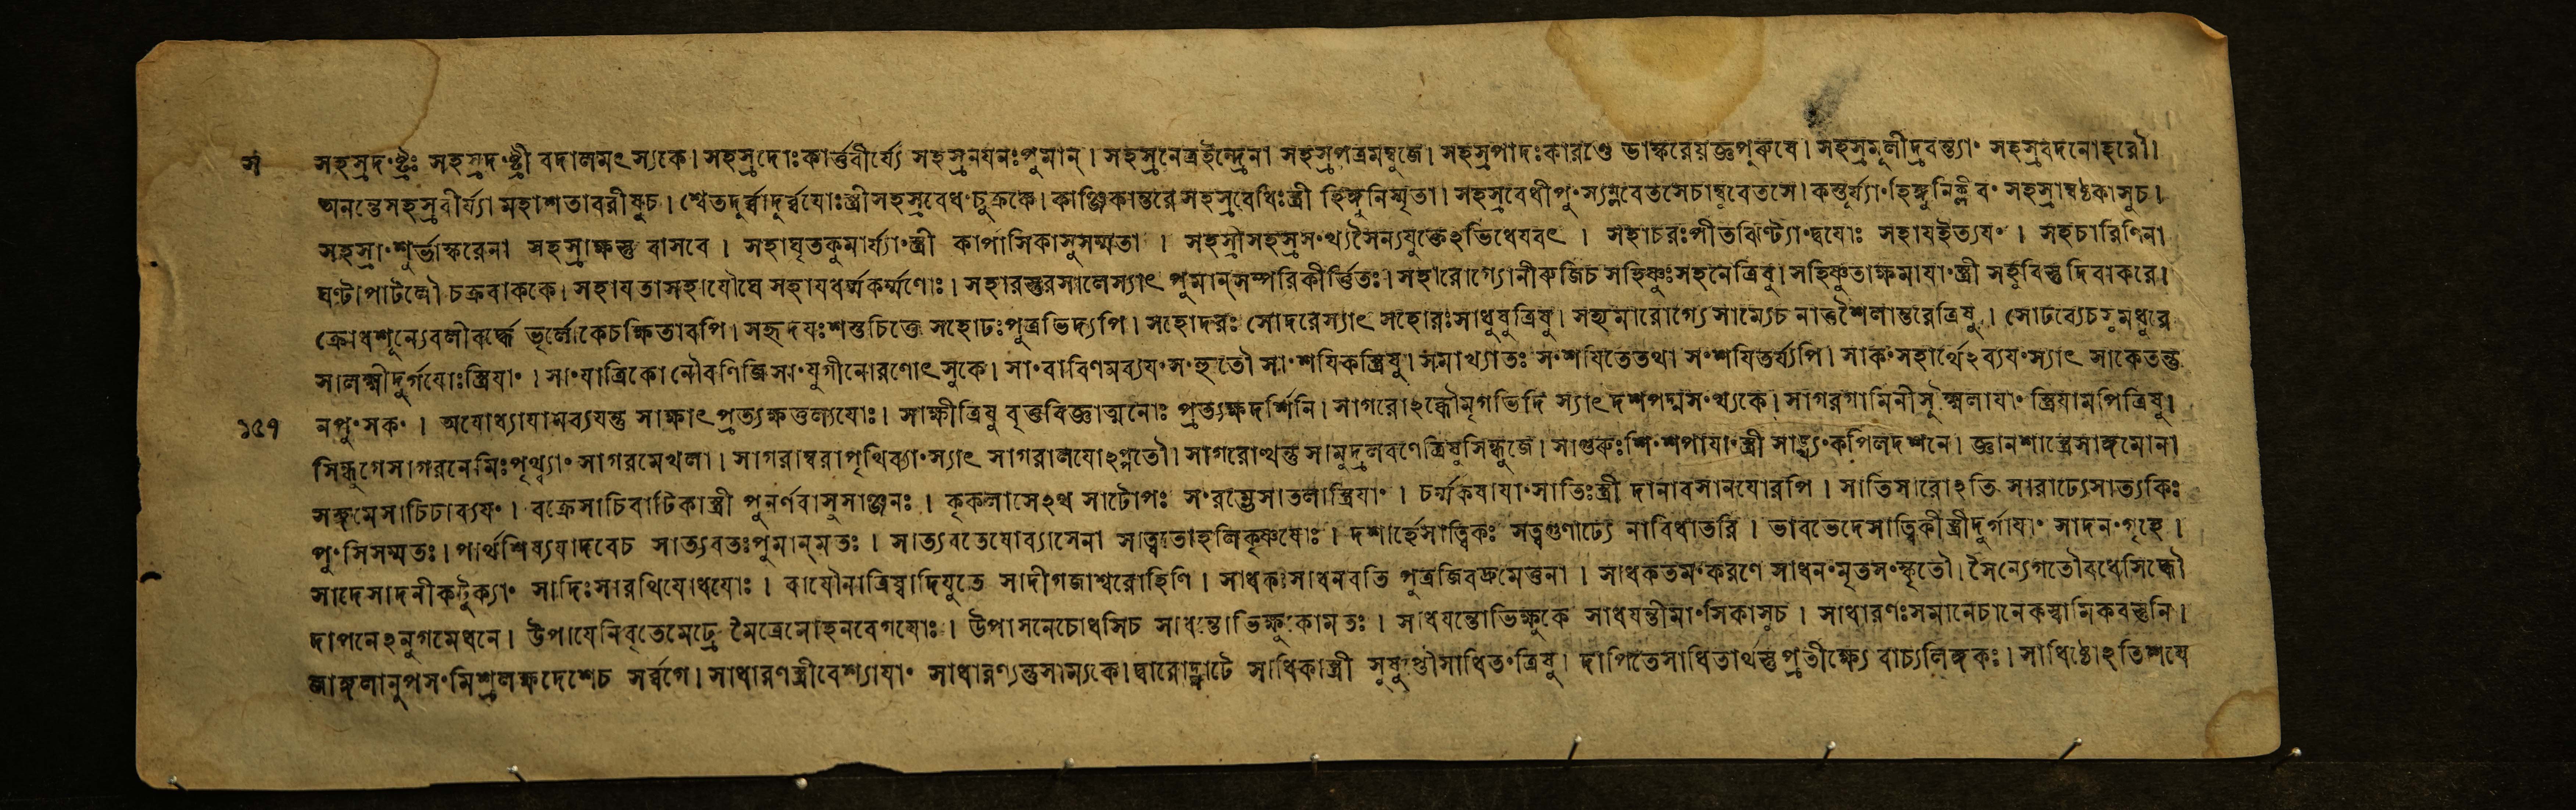 স সহস্রদংষ্ট্রঃ সহস্রদংষ্ট্রী বদালমৎস্যকে। সহস্রদোঃকার্ত্তবীর্য্যে সহস্রনযনঃপুমান্। সহস্রনেত্রইন্দ্রেনা সহস্রপত্রমম্বুজে। সহস্রপাদঃকারণ্ডে ভাস্করেযজ্ঞপুরুষে। সহস্রমূলীদ্রবন্ত্যাং সহস্রবদনোহরৌ।
অনন্তেসহস্রবীর্য্যা মহাশতাবরীষুচ। শ্বেতদূর্ব্বাদূর্ব্বযোঃস্ত্রীসহস্রবেধংচুক্রকে। কাঞ্জিকান্তরে সহস্রবেধিঃস্ত্রী হিঙ্গুনিস্মৃতা। সহস্রবেধীপুংস্যম্লবেতসেচাম্বুবেতসে। কস্তূর্য্যাংহিঙ্গুনিক্লীবং সহস্রাম্বষ্ঠকাসুচ।
সহস্রাংশুর্ভাস্করেনা সহস্রাক্ষস্তু বাসবে। সহাঘৃতকুমার্য্যাংস্ত্রী কাপাসিকাসুসম্মতা। সহস্রীসহস্রসংখ্যসৈন্যযুক্তেঽভিধেযবৎ। সহাচরঃপীতঝিণ্ট্যাংদ্বযোঃ সহাযইত্যযং। সহচারিণিনা
ঘণ্টাপাটলৌ চক্রবাককে। সহাযতাসহাযৌঘে সহাযধর্ম্মকর্ম্মণোঃ। সহারস্তুরসালেস্যাৎ পুমান্সম্পরিকীর্ত্তিতঃ। সহারোগ্যোনীরুজিচ সহিষ্ণুঃসহনেত্রিষু। সহিষ্ণুতাক্ষমাযাংস্ত্রী সহূবিস্তু দিবাকরে।
ক্রোধশূন্যেবলীবর্দ্ধে ভূর্লোকেচক্ষিতাবপি। সহৃদযঃশস্তচিত্তে সহোঢঃপুত্রভিদ্যপি। সহোদরঃ সোদরেস্যাৎ সহোরঃসাধুষুত্রিষু। সহ্যমারোগ্যেসাম্যেচ নাত্তশৈলান্তরেত্রিষু। সোঢব্যেচসুমধুরে
সালক্ষ্মীদুর্গযোঃস্ত্রিযাং। সাংযাত্রিকোনৌবণিজি সাংযুগীনোরণোৎসুকে। সাংবাবিণমব্যযংসংহুতৌ সাংশযিকস্ত্রিষু। সমাখ্যাতঃ সংশযিতেতথা সংশযিতর্য্যপি। সাকংসহার্থেঽব্যযংস্যাৎ সাকেতন্তু
১৫৭ নপুংসকং। অযোধ্যাযামব্যযন্তু সাক্ষাৎ প্রত্যক্ষতুল্যযোঃ। সাক্ষীত্রিষু বৃত্তবিজ্ঞাত্মনোঃ প্রত্যক্ষদর্শিনি। সাগরোঽব্ধৌমৃগভিদি স্যাৎদশপদ্মসংখ্যকে। সাগরগামিনীসূক্ষ্মলাযাং স্ত্রিযামপিত্রিষু।
সিন্ধুগেসাগরনেমিঃপৃথ্ব্যাং সাগরমেখলা। সাগরাম্বরাপৃথিব্যাংস্যাৎ সাগরালযোঽপ্পতৌ। সাগরোত্থন্তু সামুদ্রলবণেত্রিষুসিন্ধুজে। সাগুরুঃশিংশপাযাংস্ত্রী সাঙ্খ্যংকপিলদর্শনে। জ্ঞানশাস্ত্রেসাঙ্গমোনা
সঙ্গমেসাচিচাব্যযং। বক্রেসাচিবাটিকাস্ত্রী পুনর্ণবাসুসাঞ্জনঃ। কৃকলাসেঽথ সাটোপঃ সংরম্ভেসাতলাস্ত্রিযাং। চর্ম্মকষাযাংসাতিঃস্ত্রী দানাবসানযোরপি। সাতিসারোঽতি সারাঢ্যেসাত্যকিঃ
পুংসিসম্মতঃ। পার্থশিষ্যযাদবেচ সাত্যবতঃপুমান্মতঃ। সাত্যবতেযোব্যাসেনা সাত্ত্বতোহলিকৃষ্ণযোঃ। দশার্হেসাত্ত্বিকঃ সত্ত্বগুণাঢ্যে নাবিধাতরি। ভাবভেদেসাত্ত্বিকীস্ত্রীদুর্গাযাং সাদনংগৃহে।
সাদেসাদনীকটুক্যাং সাদিঃসারথিযোধযোঃ। বাযৌনাত্রিষ্বাদিযুতে সাদীগজাশ্বরোহিণি। সাধকঃসাধনবতি পুত্রজিবদ্রুমেত্তনা। সাধকতমংকরণে সাধনংমৃতসংস্কৃতৌ। সৈন্যেগতৌবধেসিদ্ধৌ
দাপনেঽনুগমেধনে। উপাযেনিবৃতেমেঢ্রে মৈত্রেনোহনবেগযোঃ। উপাসনেচোধসিচ সাধন্তোভিক্ষুকোমতঃ। সাধযন্তোভিক্ষুকে সাধযন্তীমাংসিকাসুচ। সাধারণঃসমানেচানেকস্বামিকবস্তুনি।
জাঙ্গলানুপসংমিশ্রলক্ষদেশেচ সর্ব্বগে। সাধারণস্ত্রীবেশ্যাযাং সাধারণ্যন্তুসাম্যকে। দ্বারোদ্ঘাটে সাধিকাস্ত্রী সুষুপ্তৌসাধিতংত্রিষু। দাপিতেসাধিতার্থস্তু প্রতীক্ষ্যে বাচ্যলিঙ্গকঃ। সাধিষ্ঠোঽতিশযে